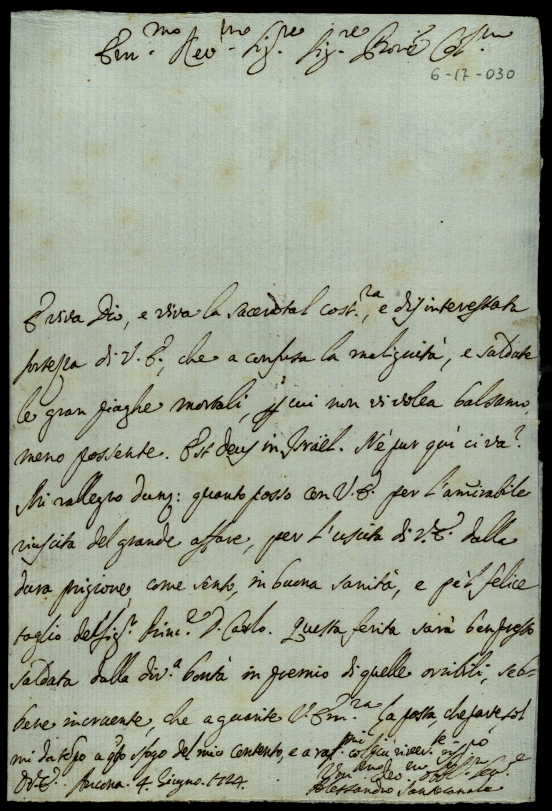 Em.mo Rev.mo Sig.re Sig.re Pron.e Col.mo
6-17-030
E viva Dio, e viva la sacerdotal cost.za, e disinteressata
fortezza di V. E., che à confusa la malignità, e saldate
le gran piaghe mortali, p cui non vi volea balsamo,
meno possente. Est deus in Israël. Né pur quì ci và
Mi rallegro dunq: quanto posso con V. E. per l'amirabile
riuscita del grande affare, per l'uscita di V. E. dalla
dura prigione, come sento, in buona sanità, e p el felice
taglio del Sig.r Princ.e D. Carlo. Questa ferita sarà ben presto
saldata dalla div.a bontà in premio di quelle orribili, seb-
bene incruente, che à guarite V. Em.za La posta, che parte, sol
mi dà tempo a qto sfogo del mio contento, e a
Di V. E. Ancona. 4. Giugno. 1724.
Um Dev Obbl Ser.e
Alessandro